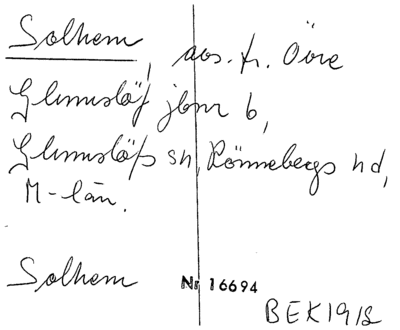 Solhem, avs. fr. Övre
Glumslöf jbnr 6,
Glumslöfs sn, Rönnebergs hd,
M-län.
Solhem Nr 16694
BEK 1918